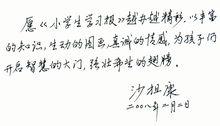 愿《小学生学习报》越办越精彩，以丰富
的知识，生动的图画，真诚的情感，为孩子们
开启智慧的大门，强壮羽生的翅膀。
沙祖康
二〇〇八年二月二日